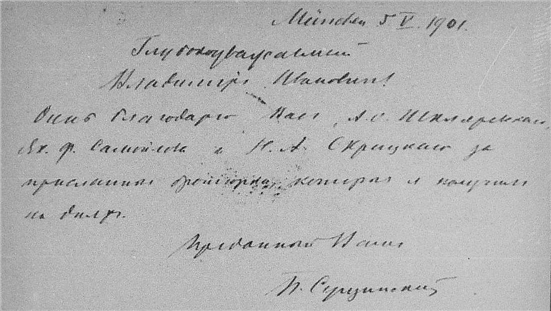 München 5 V. 1901.
Глубокоуважаемый
Владимиръ Ивановичъ!
Очень благодарю Васъ, А. О. Шкляревскаго,
Ф. Самойлова и Н. А. Скрицкаго за
присланныя брошюры, которыя я получилъ
на дняхъ.
Преданный Вамъ